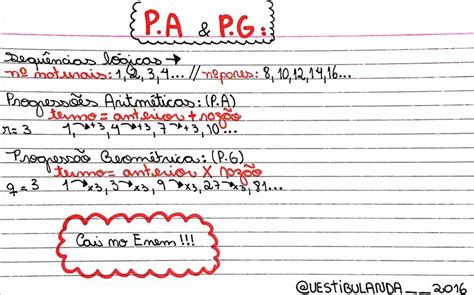 P.A & P.G:
Sequências lógicas →
nº naturais: 1, 2, 3, 4... // nº pares: 8, 10, 12, 14, 16...
Progressões Aritméticas: (P.A)
termo = anterior + razão
r = 3 1, →+3, 4 →+3, 7 →+3, 10...
Progressão Geométrica: (P.G)
termo = anterior X razão
q = 3 1 →x3, 3 →x3, 9 →x3, 27 →x3, 81...
Cai no Enem!!!
@VESTIBULANDA__2016